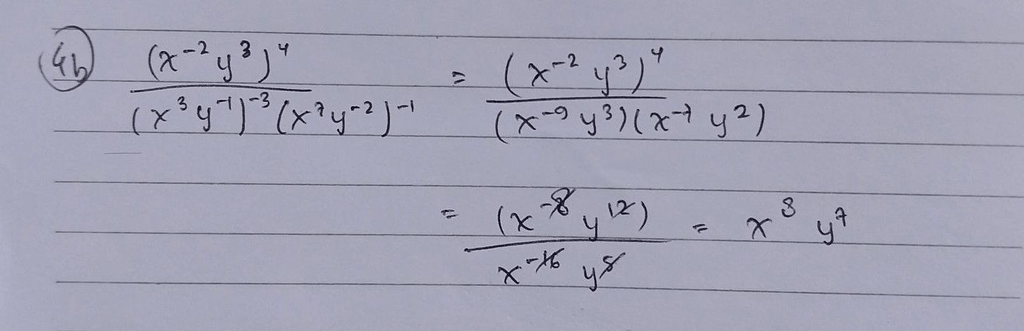 4b) (x⁻² y³)⁴ / (x³ y⁻¹)⁻³ (x⁷ y⁻²)⁻¹ = (x⁻² y³)⁴ / (x⁻⁹ y³)(x⁻⁷ y²)
= (x⁻⁸ y¹²) / x⁻¹⁶ y⁵ = x⁸ y⁷